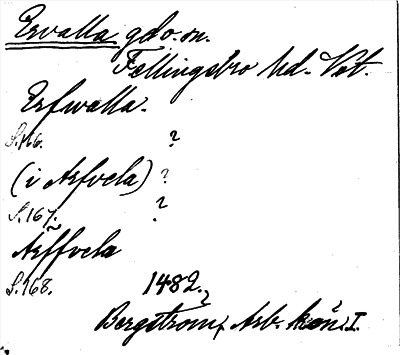 Ervalla gdo. sn.
Fellingsbro hd. Vst.
Erfwalla.
S. 166. ?
(i Arfvela) ?
S. 167. ?
Arffvela
S. 168. 1482. ?
Bergström, Arb. kön. I.